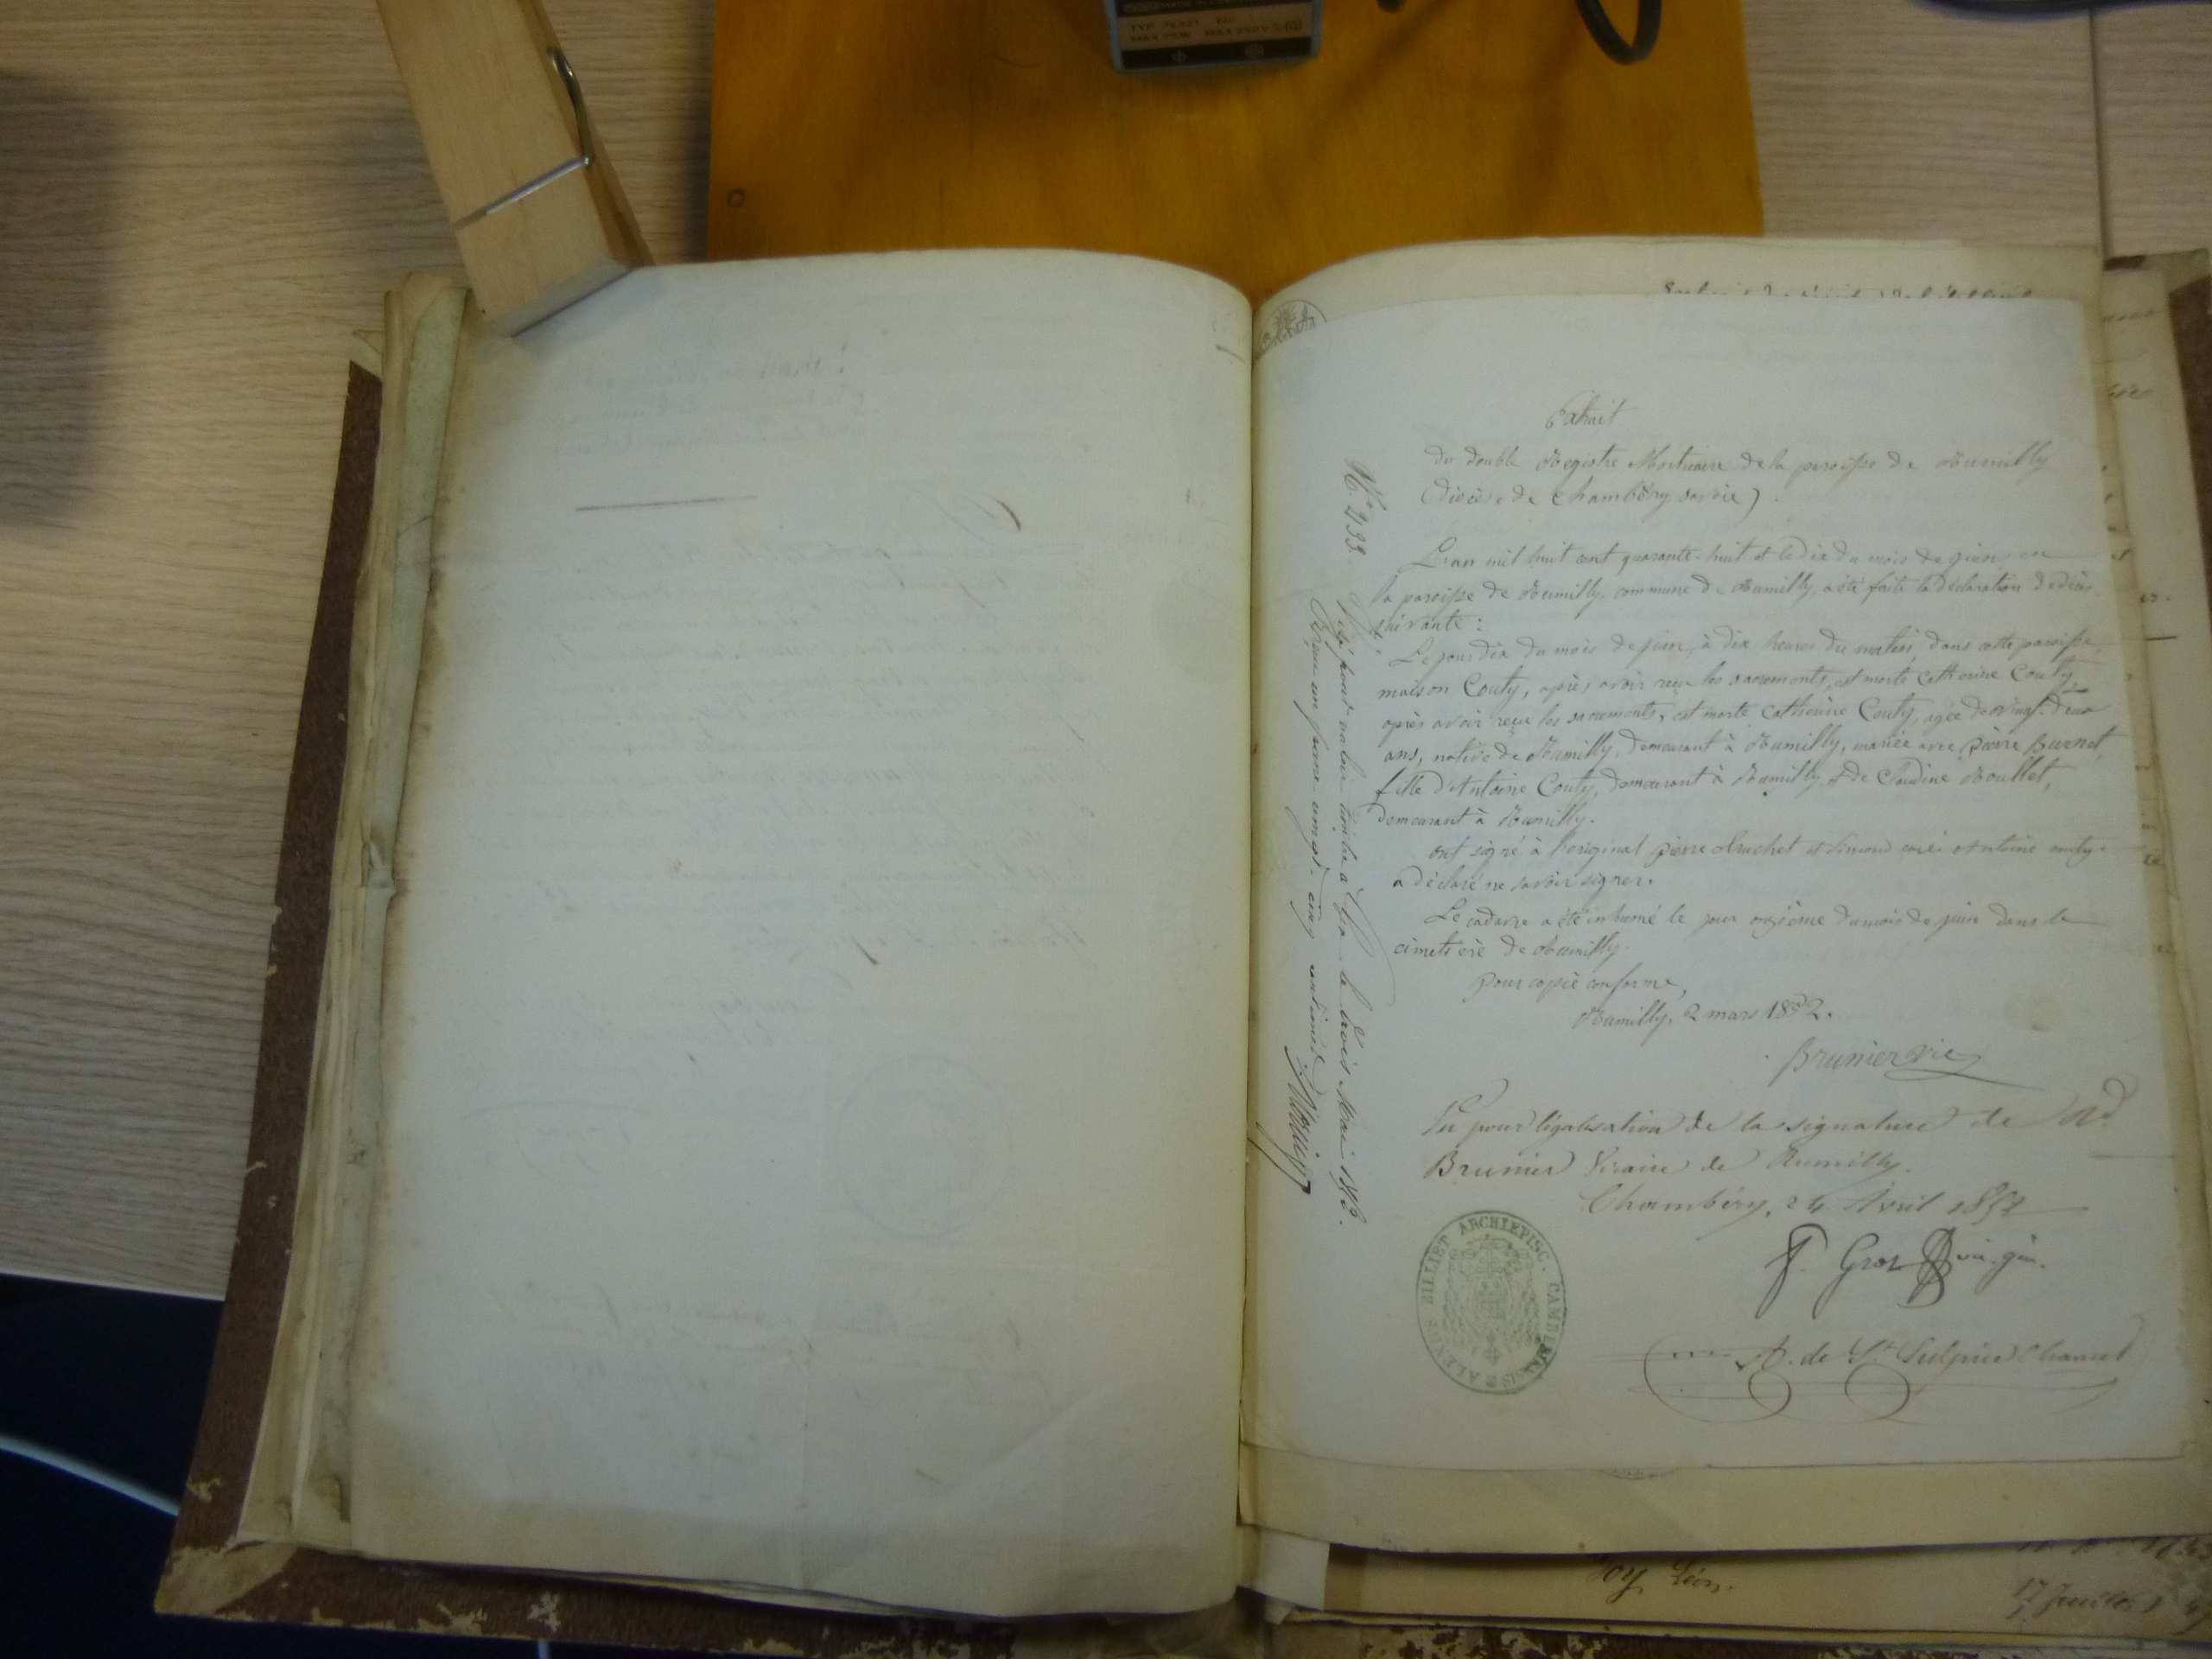 Extrait
du double Registre Mortuaire de la paroisse de Rumilly
(diocèse de Chambéry Savoie).
L'an mil huit cent quarante-huit et le dix du mois de juin en
la paroisse de Rumilly, commune de Rumilly, a été faite la déclaration de décès
suivante :
Le jour dix du mois de juin, à dix heures du matin, dans cette paroisse,
maison Couty, après avoir reçu les sacrements, est morte Catherine Couty,
après avoir reçu les sacrements, est morte Catherine Couty, agée de vingt-deux
ans, native de Rumilly, demeurant à Rumilly, mariée avec Pierre Burnet,
fille d'Antoine Couty, demeurant à Rumilly et de Claudine Roullet,
demeurant à Rumilly.
Ont signé à l'original Pierre Cruchet et Simond curé. Antoine Couty
a déclaré ne savoir signer.
Le cadavre a été inhumé le jour onzième du mois de juin dans le
cimetière de Rumilly.
Pour copie conforme,
Rumilly, 2 mars 1852.
Brunier vic
Vu pour légalisation de la signature de Rd
Brunier Vicaire de Rumilly.
Chambéry, 24 Avril 1852
F. Gros vic. gén.
de St Sulpice
ALEXIUS BILLIET ARCHIEPISC. CAMBERIENSIS
N° 233. Visé pour valoir timbre à le trois Mai 1852.
Reçu un franc vingt-cinq centimes
Foy Léon.
17 Juillet